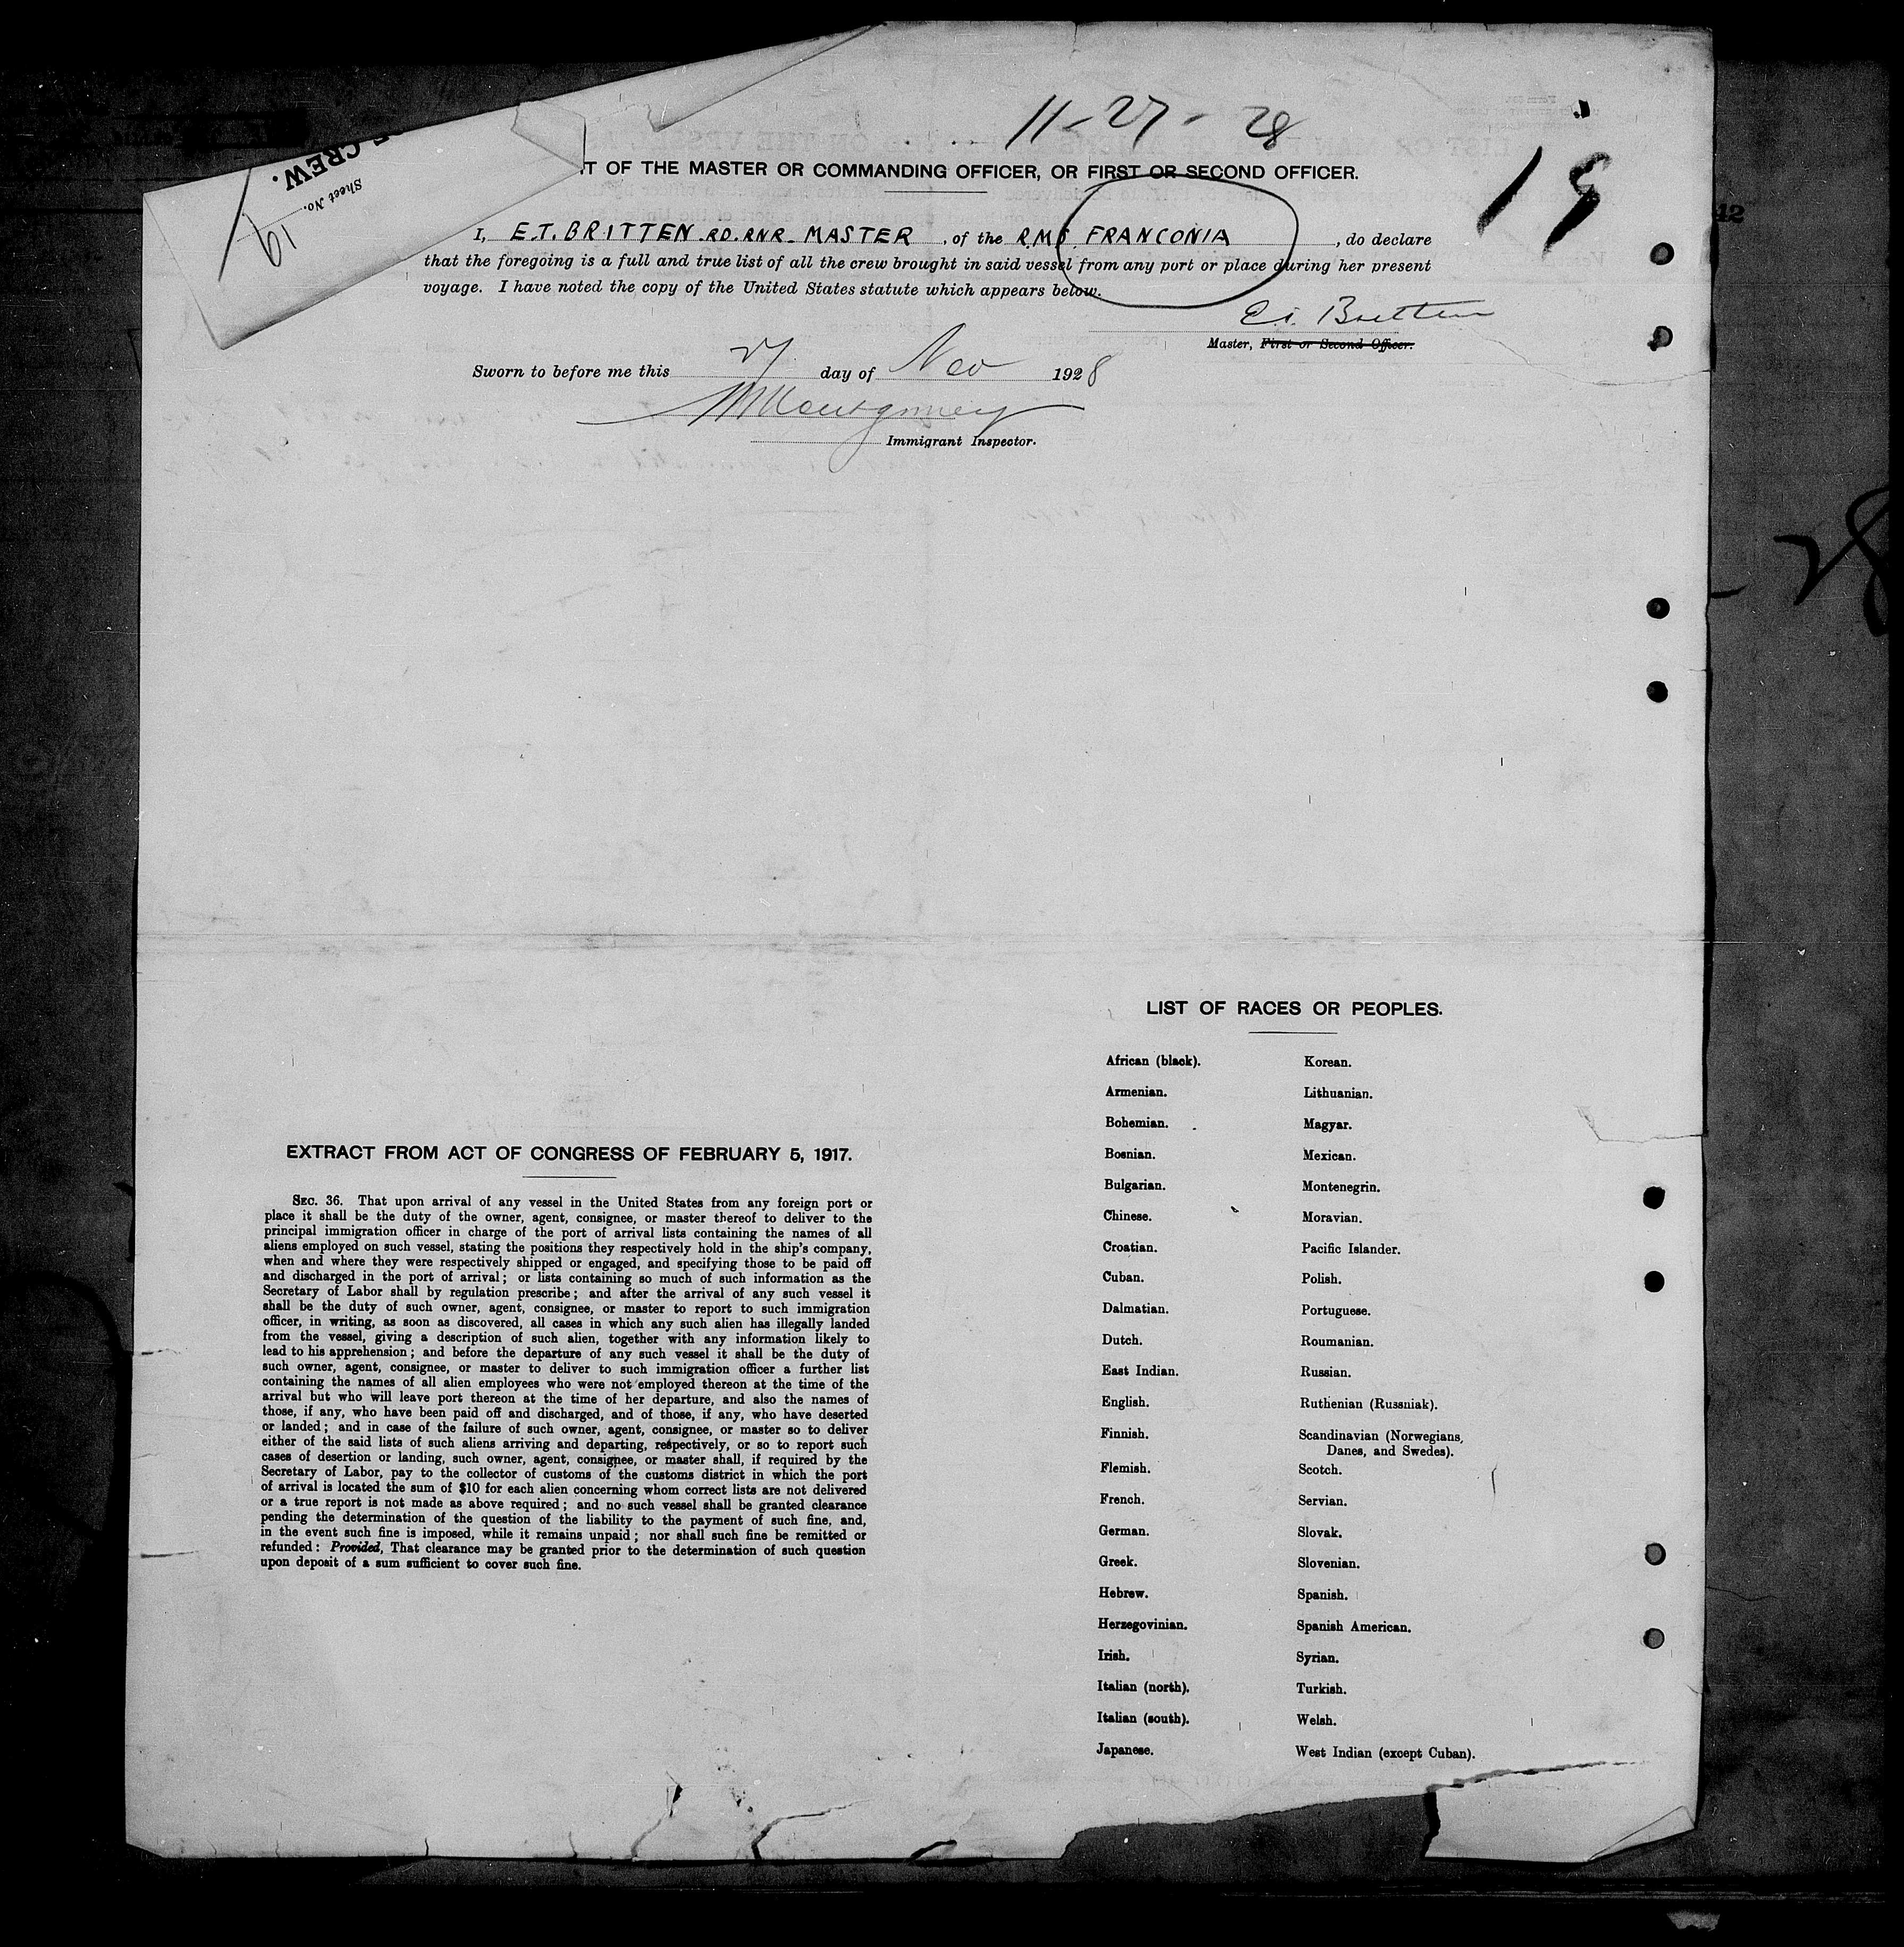 11-27-28
19
CREW.
Sheet No.
19
T OF THE MASTER OR COMMANDING OFFICER, OR FIRST OR SECOND OFFICER.
I, E.T. BRITTEN. RD. RNR. MASTER, of the R.M.S. FRANCONIA, do declare
that the foregoing is a full and true list of all the crew brought in said vessel from any port or place during her present
voyage. I have noted the copy of the United States statute which appears below.
E.T. Britten
Master, First or Second Officer.
Sworn to before me this 27 day of Nov 1928
Montgomery
Immigrant Inspector.
12
28
EXTRACT FROM ACT OF CONGRESS OF FEBRUARY 5, 1917.
SEC. 36. That upon arrival of any vessel in the United States from any foreign port or
place it shall be the duty of the owner, agent, consignee, or master thereof to deliver to the
principal immigration officer in charge of the port of arrival lists containing the names of all
aliens employed on such vessel, stating the positions they respectively hold in the ship's company,
when and where they were respectively shipped or engaged, and specifying those to be paid off
and discharged in the port of arrival; or lists containing so much of such information as the
Secretary of Labor shall by regulation prescribe; and after the arrival of any such vessel it
shall be the duty of such owner, agent, consignee, or master to report to such immigration
officer, in writing, as soon as discovered, all cases in which any such alien has illegally landed
from the vessel, giving a description of such alien, together with any information likely to
lead to his apprehension; and before the departure of any such vessel it shall be the duty of
such owner, agent, consignee, or master to deliver to such immigration officer a further list
containing the names of all alien employees who were not employed thereon at the time of the
arrival but who will leave port thereon at the time of her departure, and also the names of
those, if any, who have been paid off and discharged, and of those, if any, who have deserted
or landed; and in case of the failure of such owner, agent, consignee, or master so to deliver
either of the said lists of such aliens arriving and departing, respectively, or so to report such
cases of desertion or landing, such owner, agent, consignee, or master shall, if required by the
Secretary of Labor, pay to the collector of customs of the customs district in which the port
of arrival is located the sum of $10 for each alien concerning whom correct lists are not delivered
or a true report is not made as above required; and no such vessel shall be granted clearance
pending the determination of the question of the liability to the payment of such fine, and,
in the event such fine is imposed, while it remains unpaid; nor shall such fine be remitted or
refunded: Provided, That clearance may be granted prior to the determination of such question
upon deposit of a sum sufficient to cover such fine.
LIST OF RACES OR PEOPLES.
African (black).
Armenian.
Bohemian.
Bosnian.
Bulgarian.
Chinese.
Croatian.
Cuban.
Dalmatian.
Dutch.
East Indian.
English.
Finnish.
Flemish.
French.
German.
Greek.
Hebrew.
Herzegovinian.
Irish.
Italian (north).
Italian (south).
Japanese.
Korean.
Lithuanian.
Magyar.
Mexican.
Montenegrin.
Moravian.
Pacific Islander.
Polish.
Portuguese.
Roumanian.
Russian.
Ruthenian (Russniak).
Scandinavian (Norwegians,
Danes, and Swedes).
Scotch.
Servian.
Slovak.
Slovenian.
Spanish.
Spanish American.
Syrian.
Turkish.
Welsh.
West Indian (except Cuban).